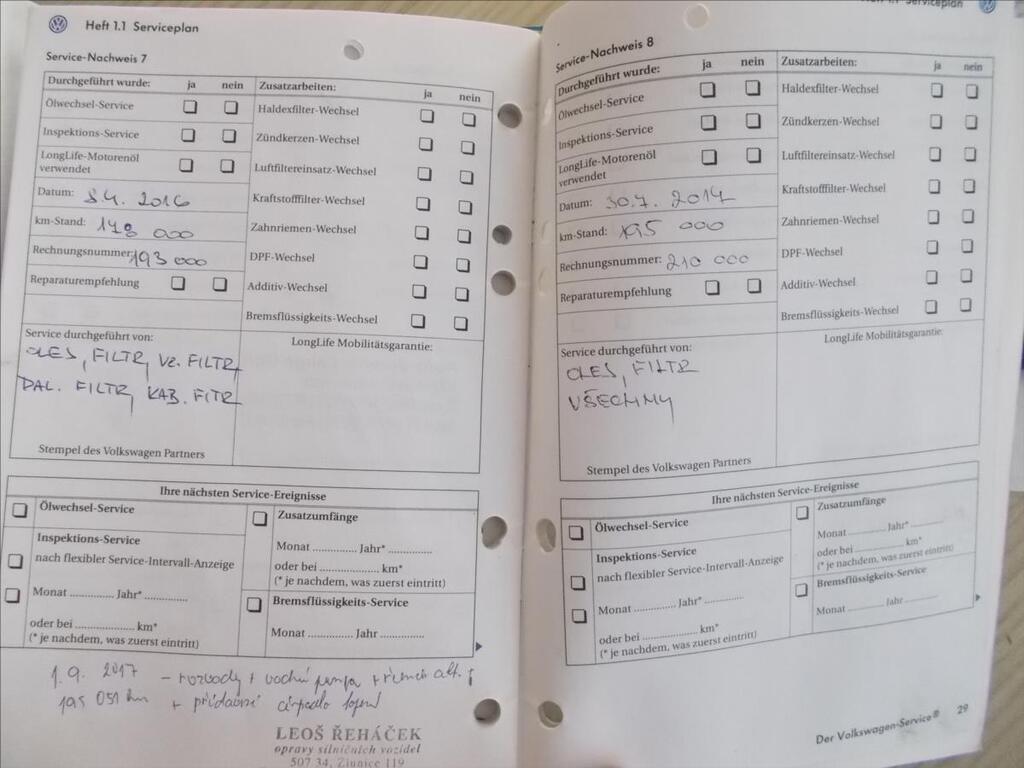 Heft 1.1 Serviceplan
Service-Nachweis 7
Durchgeführt wurde: ja nein
Ölwechsel-Service
Inspektions-Service
LongLife-Motorenöl
verwendet
Datum: 8.4. 2016
km-Stand: 178 000
Rechnungsnummer: 193 000
Reparaturempfehlung
Zusatzarbeiten: ja nein
Haldexfilter-Wechsel
Zündkerzen-Wechsel
Luftfiltereinsatz-Wechsel
Kraftstofffilter-Wechsel
Zahnriemen-Wechsel
DPF-Wechsel
Additiv-Wechsel
Bremsflüssigkeits-Wechsel
Service durchgeführt von:
OLEJ, FILTR, VZ. FILTR,
PAL. FILTR, KAB. FITR
Stempel des Volkswagen Partners
LongLife Mobilitätsgarantie:
Ihre nächsten Service-Ereignisse
Ölwechsel-Service
Inspektions-Service
nach flexibler Service-Intervall-Anzeige
Monat .............. Jahr* ..............
oder bei .................... km*
(* je nachdem, was zuerst eintritt)
Zusatzumfänge
Monat .............. Jahr* .............
oder bei .................... km*
(* je nachdem, was zuerst eintritt)
Bremsflüssigkeits-Service
Monat .............. Jahr ..............
1. 9. 2017 - rozvody + vodní pumpa + řemen alt.
195 051 km + přídavné čerpadlo topení
LEOŠ ŘEHÁČEK
opravy silničních vozidel
507 34, Žlunice 119
Serviceplan
Service-Nachweis 8
Durchgeführt wurde: ja nein
Ölwechsel-Service
Inspektions-Service
LongLife-Motorenöl
verwendet
Datum: 30.7. 2017
km-Stand: 195 000
Rechnungsnummer: 210 000
Reparaturempfehlung
Zusatzarbeiten: ja nein
Haldexfilter-Wechsel
Zündkerzen-Wechsel
Luftfiltereinsatz-Wechsel
Kraftstofffilter-Wechsel
Zahnriemen-Wechsel
DPF-Wechsel
Additiv-Wechsel
Bremsflüssigkeits-Wechsel
Service durchgeführt von:
OLEJ, FILTR
VŠECHNY
Stempel des Volkswagen Partners
LongLife Mobilitätsgarantie:
Ihre nächsten Service-Ereignisse
Ölwechsel-Service
Inspektions-Service
nach flexibler Service-Intervall-Anzeige
Monat .............. Jahr* ..............
oder bei .................... km*
(* je nachdem, was zuerst eintritt)
Zusatzumfänge
Monat .............. Jahr* .............
oder bei .................... km*
(* je nachdem, was zuerst eintritt)
Bremsflüssigkeits-Service
Monat .............. Jahr ..............
Der Volkswagen-Service® 29